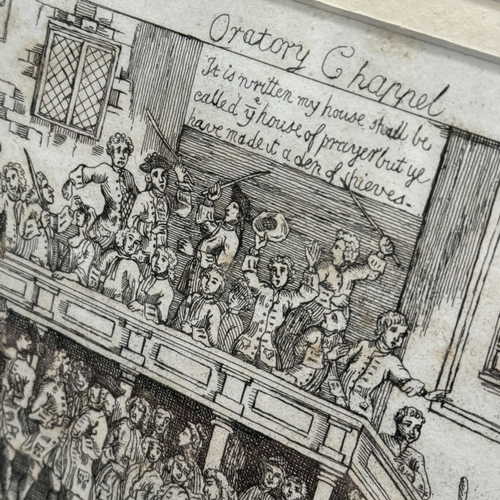 Oratory Chappel
It is written my house shall be
called yᵉ house of prayer but ye
have made it a den of thieves.